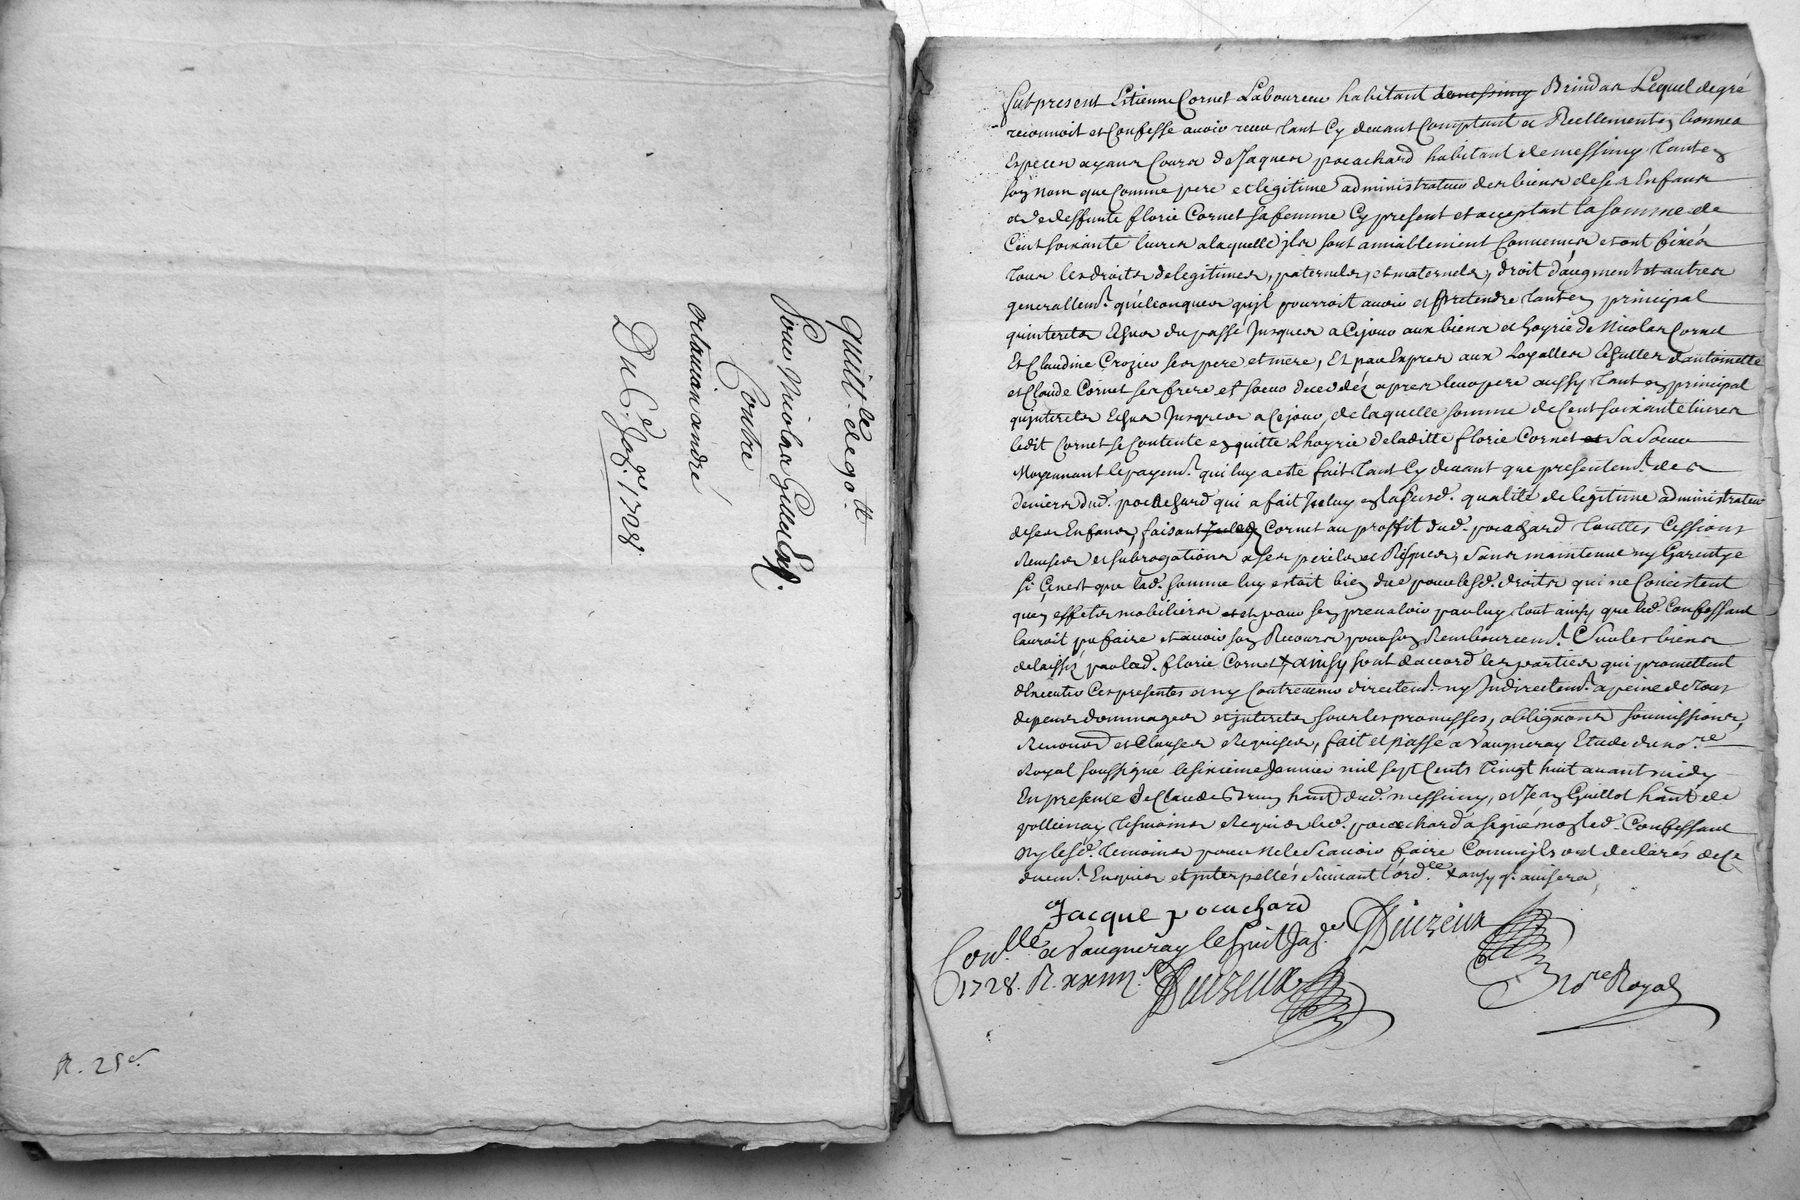 Quitt.ce de 90.tt
Pour Nicolas
Contre
andré
Du 6.e Jan.er 1728.
R. 25 s.
fut present Estienne Cornet Laboureur habitant demessimy Brindas Lequel de gré
reconnoit et Confesse avoir receu tant Cy devant Comptant et Reellement en bonnes
Especes ayans Cours de Jaques pocachard habitant de messimy tant en
son nom que Comme pere et legitime administrateur des biens de ses Enfans
et de deffunte florie Cornet sa femme Cy present et acceptant la somme de
Cent soixante livres a laquelle jls sont amiablement Convenus et ont fixés
tous les droits de legitimes, paternels, et maternels, droit d'augment et autres
generallem.t quelconques qu'jl pourroit avoir et pretendre tant en principal
qu'interets Echus du passé Jusques a Cejour aux biens et hoyrie de Nicolas Cornet
Et Claudine Crozier ses pere et mere, Et par Expres aux Loyalles Echuttes d'antoinette
et Claude Cornet ses frere et soeur decedéz apres leur pere aussy tant en principal
qu'jnterets Echus Jusques a Cejour, de laquelle somme de Cent soixante livres
ledit Cornet se Contente en quitte L'hoyrie de laditte florie Cornet et sa soeur
Moyennant le payem.t qui luy a esté fait tant Cy devant que presentem.t des
deniers dud. pocachard qui a fait Jceluy en lasusd. qualité de legitime administrateur
de ses Enfans, faisant Cornet au proffit dud. pocachard touttes Cessions
Remises et subrogations a ses perils et Risques, sans maintenue ny Garentye
si Ce n'est que lad. somme luy estoit bien due pour lesd. droits qui ne Concistent
qu'en effets mobiliers et pour s'en prevaloir par luy tout ainsy que led. Confessant
lauroit pu faire et avoir son Recours pour son Remboursem.t sur les biens
delaissés par lad. florie Cornet + ainsy sont d'accord les parties qui promettent
d'Executer Ces presentes et ny Contrevenir directem.t ny Jndirectem.t a peine de tous
depens dommages et jnterets sous les promesses, obligaons soumissions,
Renonc.on et Clauses Requises, fait et passé a Vaugneray Etude du no.re
Royal soussigné le sixieme Janvier mil sept Cents vingt huit avant midy
En presence de Claude Brun hant dud. messimy, et Jean Guillot hant de
pollienay temoins Requis led. pocachard a signé non led. Confessant
Ny lesd. temoins pour ne le Scavoir faire Comm'jls ont declarés de ce
duem.t Enquis et jnterpellés suivant l'ord.ce
Jacque pocachard
Con.lle a Vaugneray le huit Ja.er
1728. R.
no.re Royal